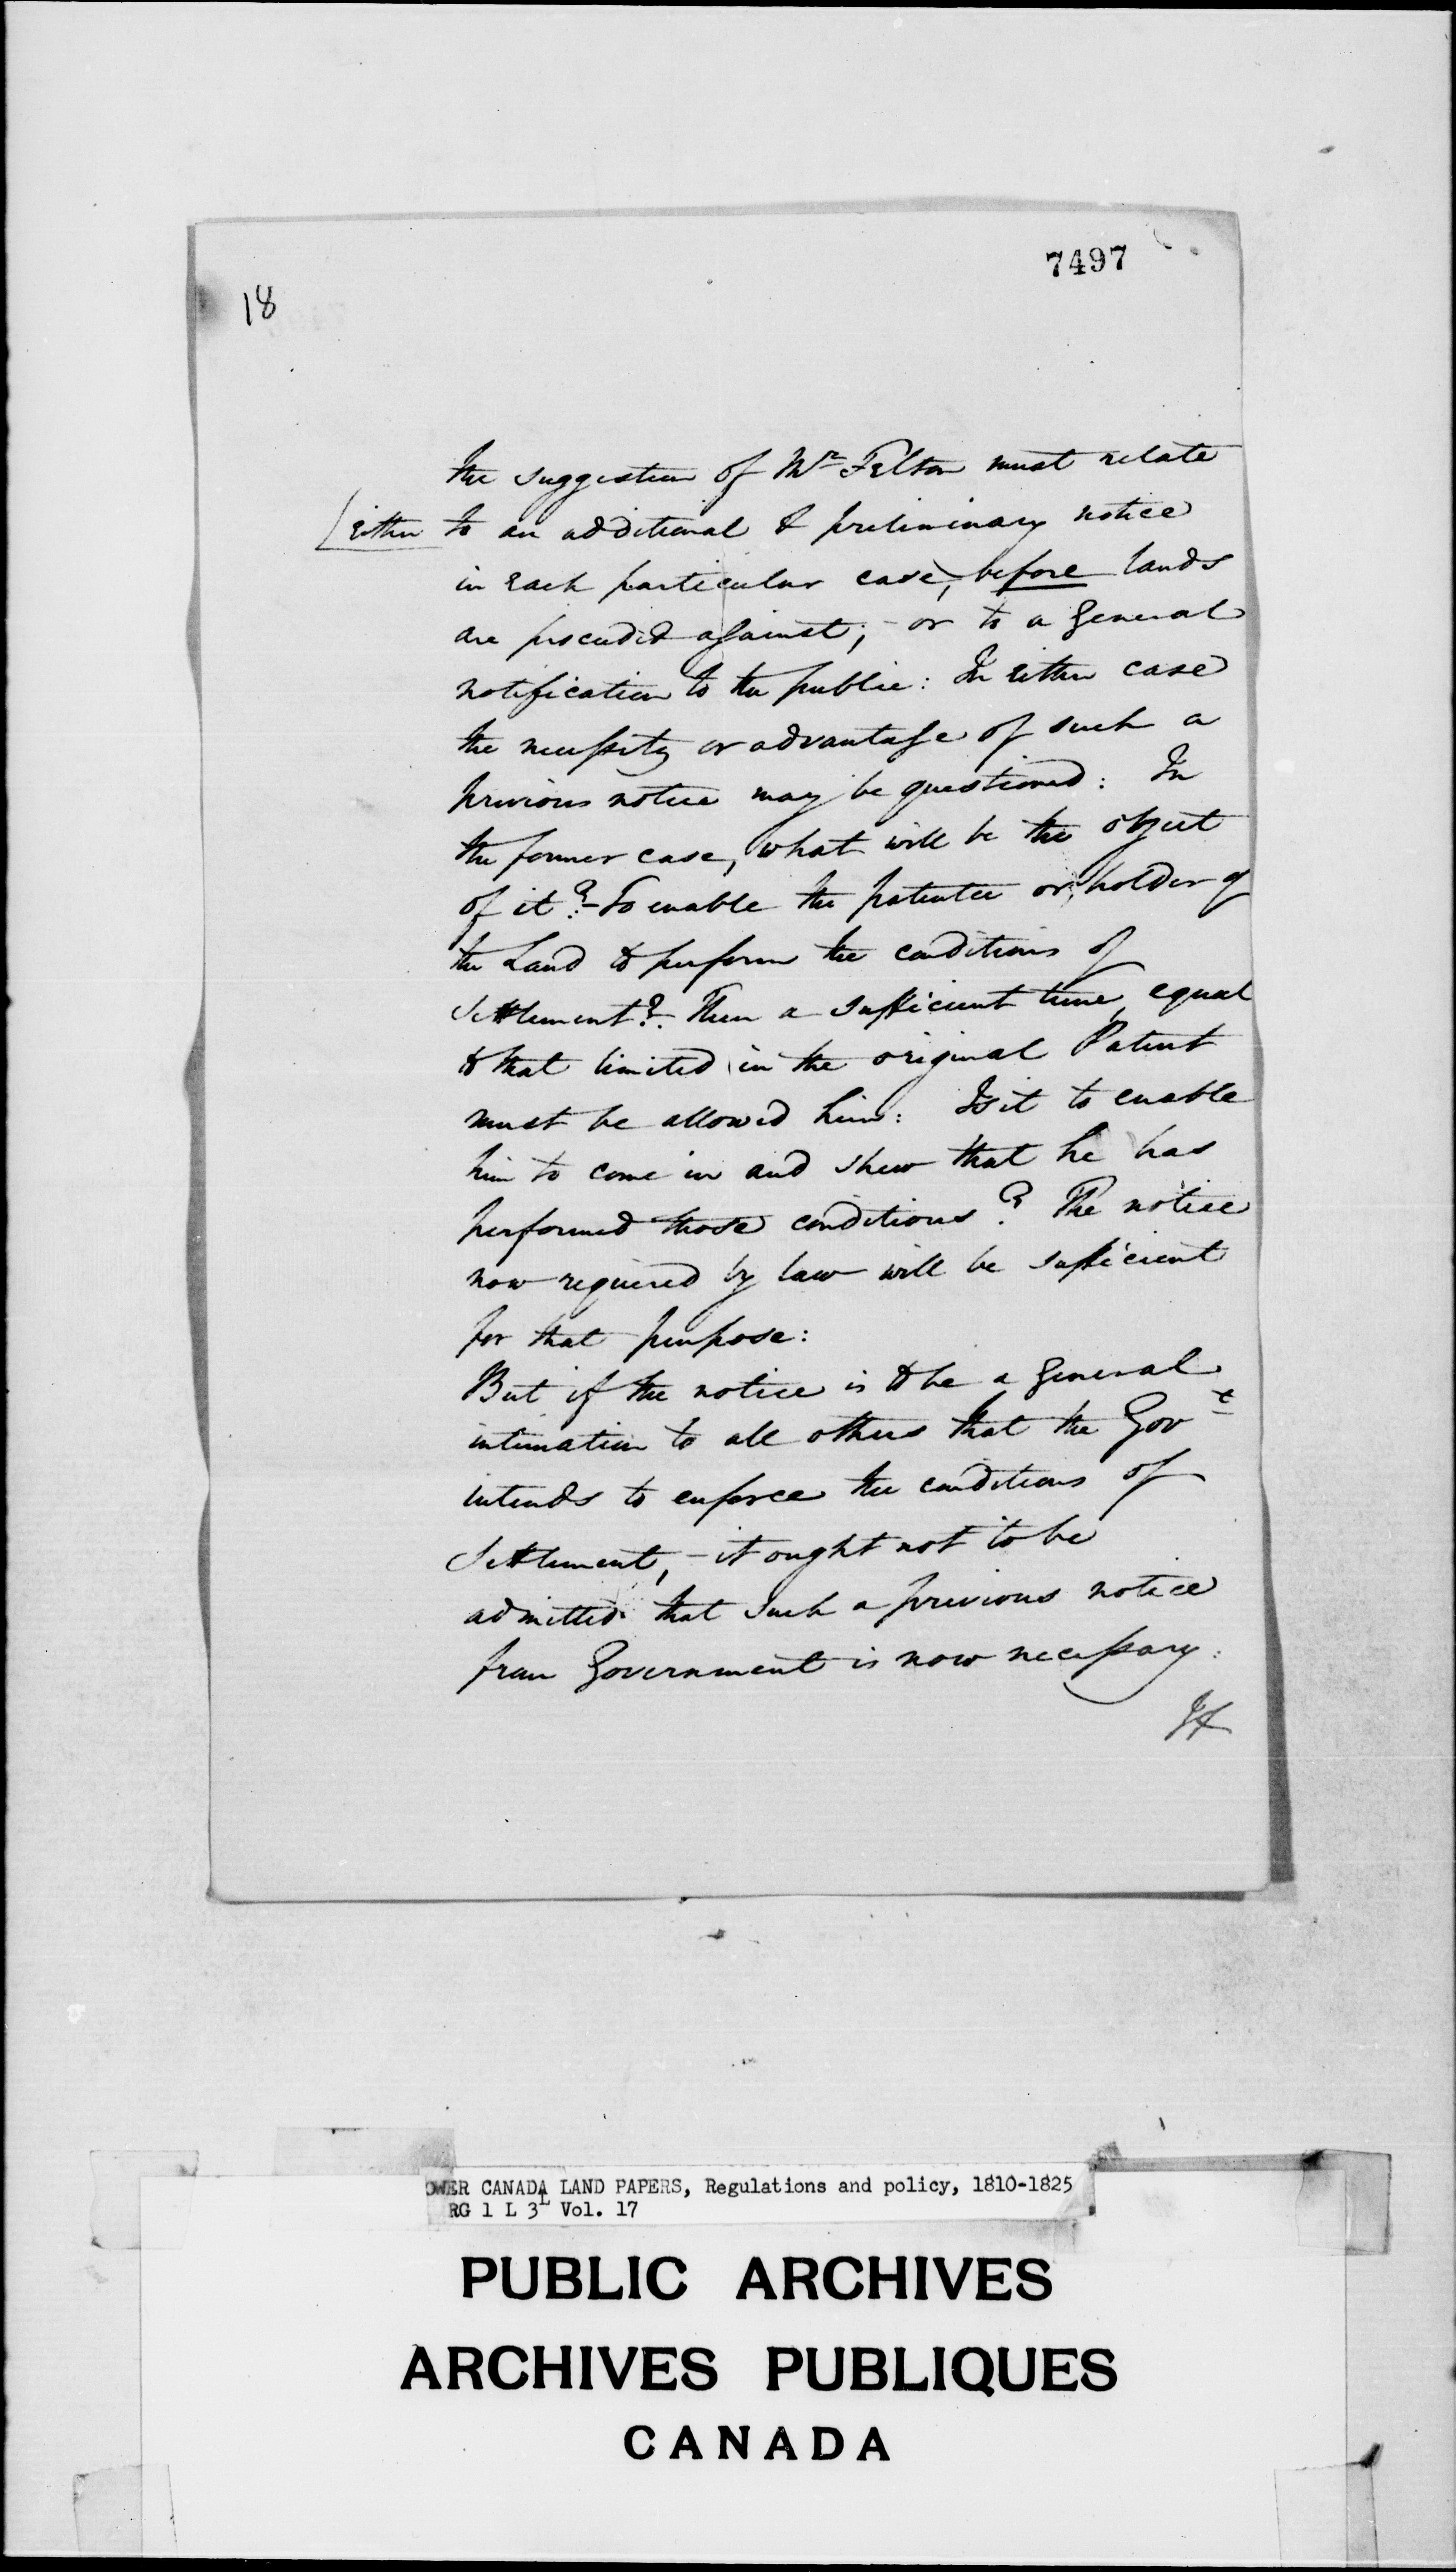 7497
18
The suggestion of Mr Felton must relate
[either to an additional & preliminary notice
in each particular case, before lands
are proceeded against; - or to a General
notification to the public: In either case
the necessity or advantage of such a
previous notice may be questioned: In
the former case, what will be the object
of it? - To enable the patentee or holder of
the Land to perform the conditions of
Settlement? Then a sufficient time, equal
to that limited in the original Patent
must be allowed him: Is it to enable
him to come in and shew that he has
performed those conditions? The notice
now required by law will be sufficient
for that purpose:
But if the notice is to be a General
intimation to all others that the Govt
intends to enforce the conditions of
Settlement, - it ought not to be
admitted that such a previous notice
from Government is now necessary:
If
OWER CANADA LAND PAPERS, Regulations and policy, 1810-1825
RG 1 L 3L Vol. 17
PUBLIC ARCHIVES
ARCHIVES PUBLIQUES
CANADA